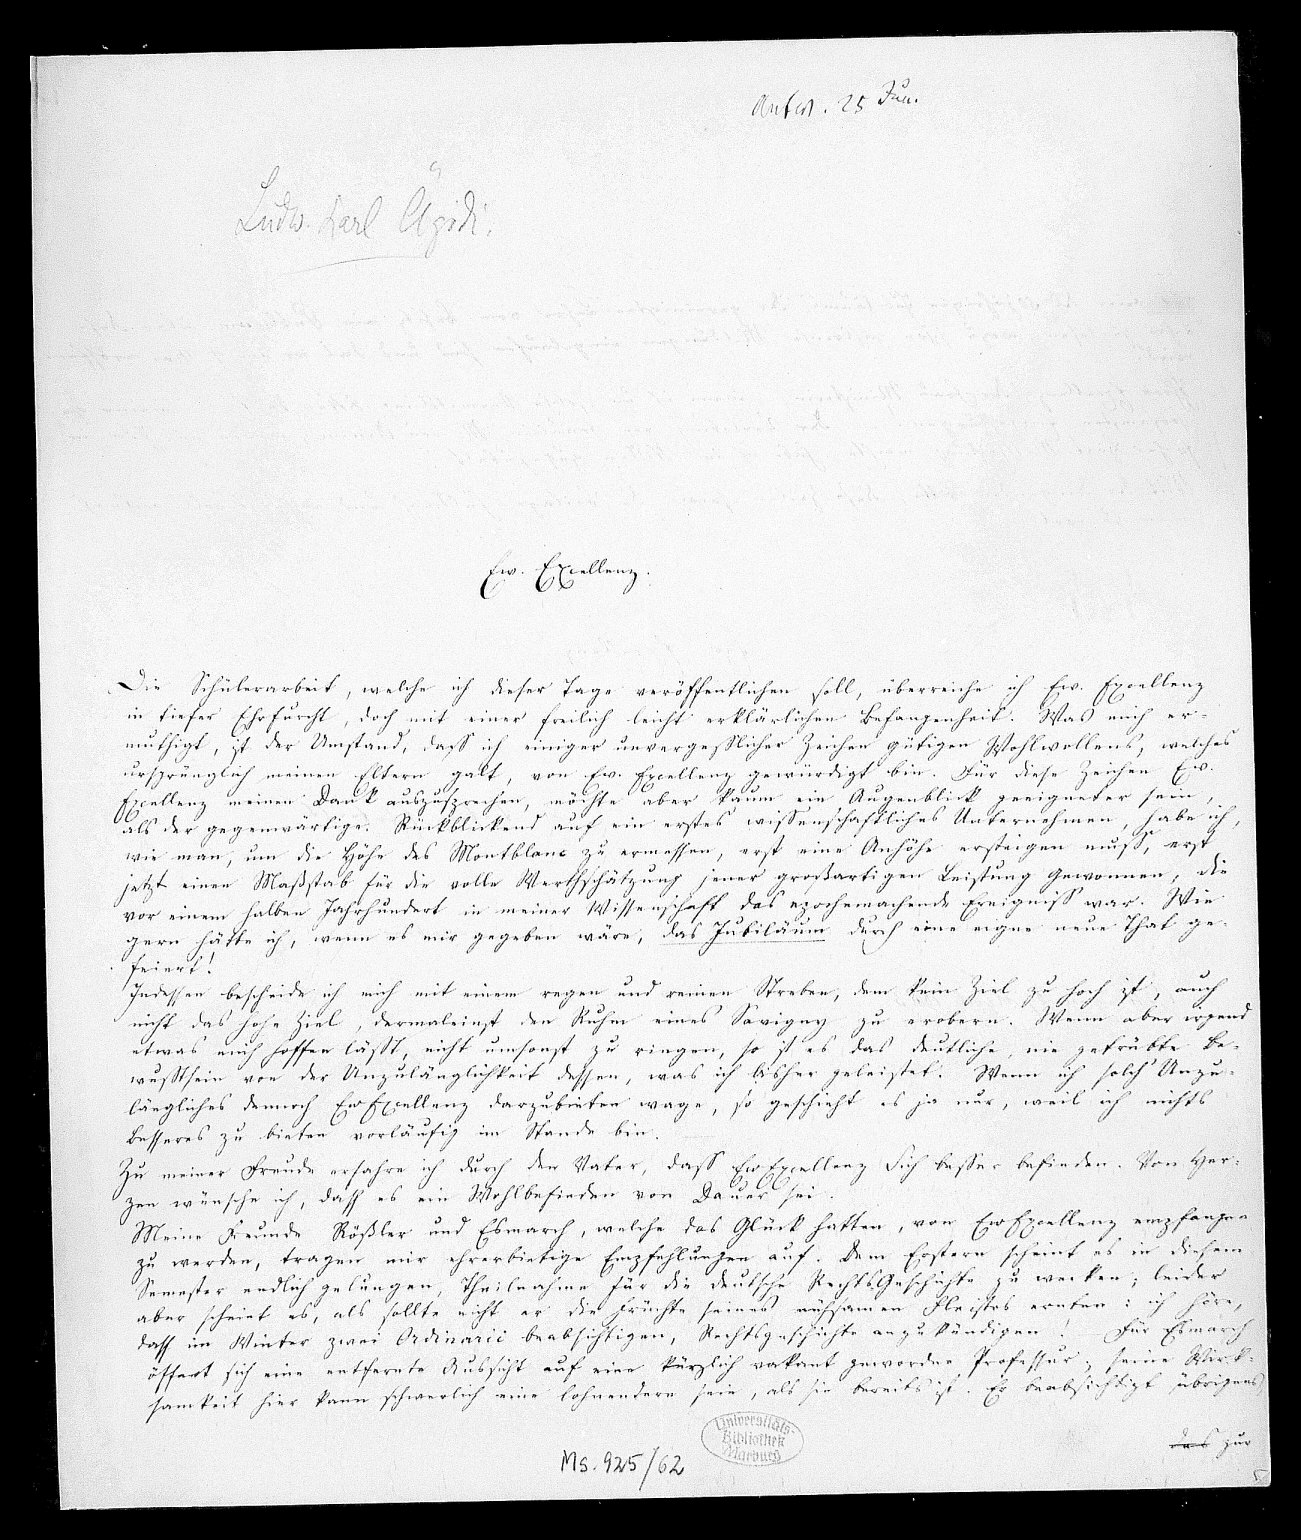 Antw. 25 Jun.
Ludw. Karl Ägidi.
Ew. Excellenz.
Die Schülerarbeit, welche ich dieser Tage veröffentlichen soll, überreiche ich Ew. Excellenz
in tiefer Ehrfurcht, doch mit einer freilich leicht erklärlichen Befangenheit. Was mich er-
muthigt, ist der Umstand, dass ich einiger unvergesslicher Zeichen gütigen Wohlwollens, welches
ursprünglich meinen Eltern galt, von Ew. Excellenz gewürdigt bin. Für diese Zeichen Ew.
Excellenz meinen Dank auszusprechen, möchte aber kaum ein Augenblick geeigneter sein,
als der gegenwärtige. Rückblickend auf ein erstes wissenschaftliches Unternehmen, habe ich,
wie man, um die Höhe des Montblanc zu ermessen, erst eine Anhöhe ersteigen muss, erst
jetzt einen Maßstab für die volle Werthschätzung jener großartigen Leistung gewonnen, die
vor einem halben Jahrhundert in meiner Wissenschaft das epochemachende Ereigniss war. Wie
gern hätte ich, wenn es mir gegeben wäre, das Jubiläum durch eine eigne neue That ge-
feiert!
Indessen bescheide ich mich mit einem regen und reinen Streben, dem kein Ziel zu hoch ist, auch
nicht das hohe Ziel, dermaleinst den Ruhm eines Savigny zu erobern. Wenn aber irgend
etwas mich hoffen lässt, nicht umsonst zu ringen, so ist es das deutliche, nie getrübte Be-
wusstsein von der Unzulänglichkeit dessen, was ich bisher geleistet. Wenn ich solch' Unzu-
längliches dennoch Ew Excellenz darzubieten wage, so geschieht es ja nur, weil ich nichts
Besseres zu bieten vorläufig im Stande bin.
Zu meiner Freude erfahre ich durch den Vater, dass Ew Excellenz sich besser befinden. Von Her-
zen wünsche ich, dass es ein Wohlbefinden von Dauer sei.
Meine Freunde Rößler und Esmarch, welche das Glück hatten, von Ew Excellenz empfangen
zu werden, tragen mir ehrerbietige Empfehlungen auf. Dem Erstern scheint es in diesem
Semester endlich gelungen, Theilnahme für die deutsche RechtsGeschichte zu wecken; leider
aber scheint es, als sollte nicht er die Früchte seines mühsamen Fleißes ernten: ich höre,
dass im Winter zwei Ordinarii beabsichtigen, Rechtsgeschichte anzukündigen! Für Esmarch
öffnet sich eine entfernte Aussicht auf eine kürzlich vakant gewordne Professur; seine Wirk-
samkeit hier kann schwerlich eine lohnendere sein, als sie bereits ist. Er beabsichtigt übrigens
das zur
Universitäts-
Bibliothek
Marburg
Ms. 925/62